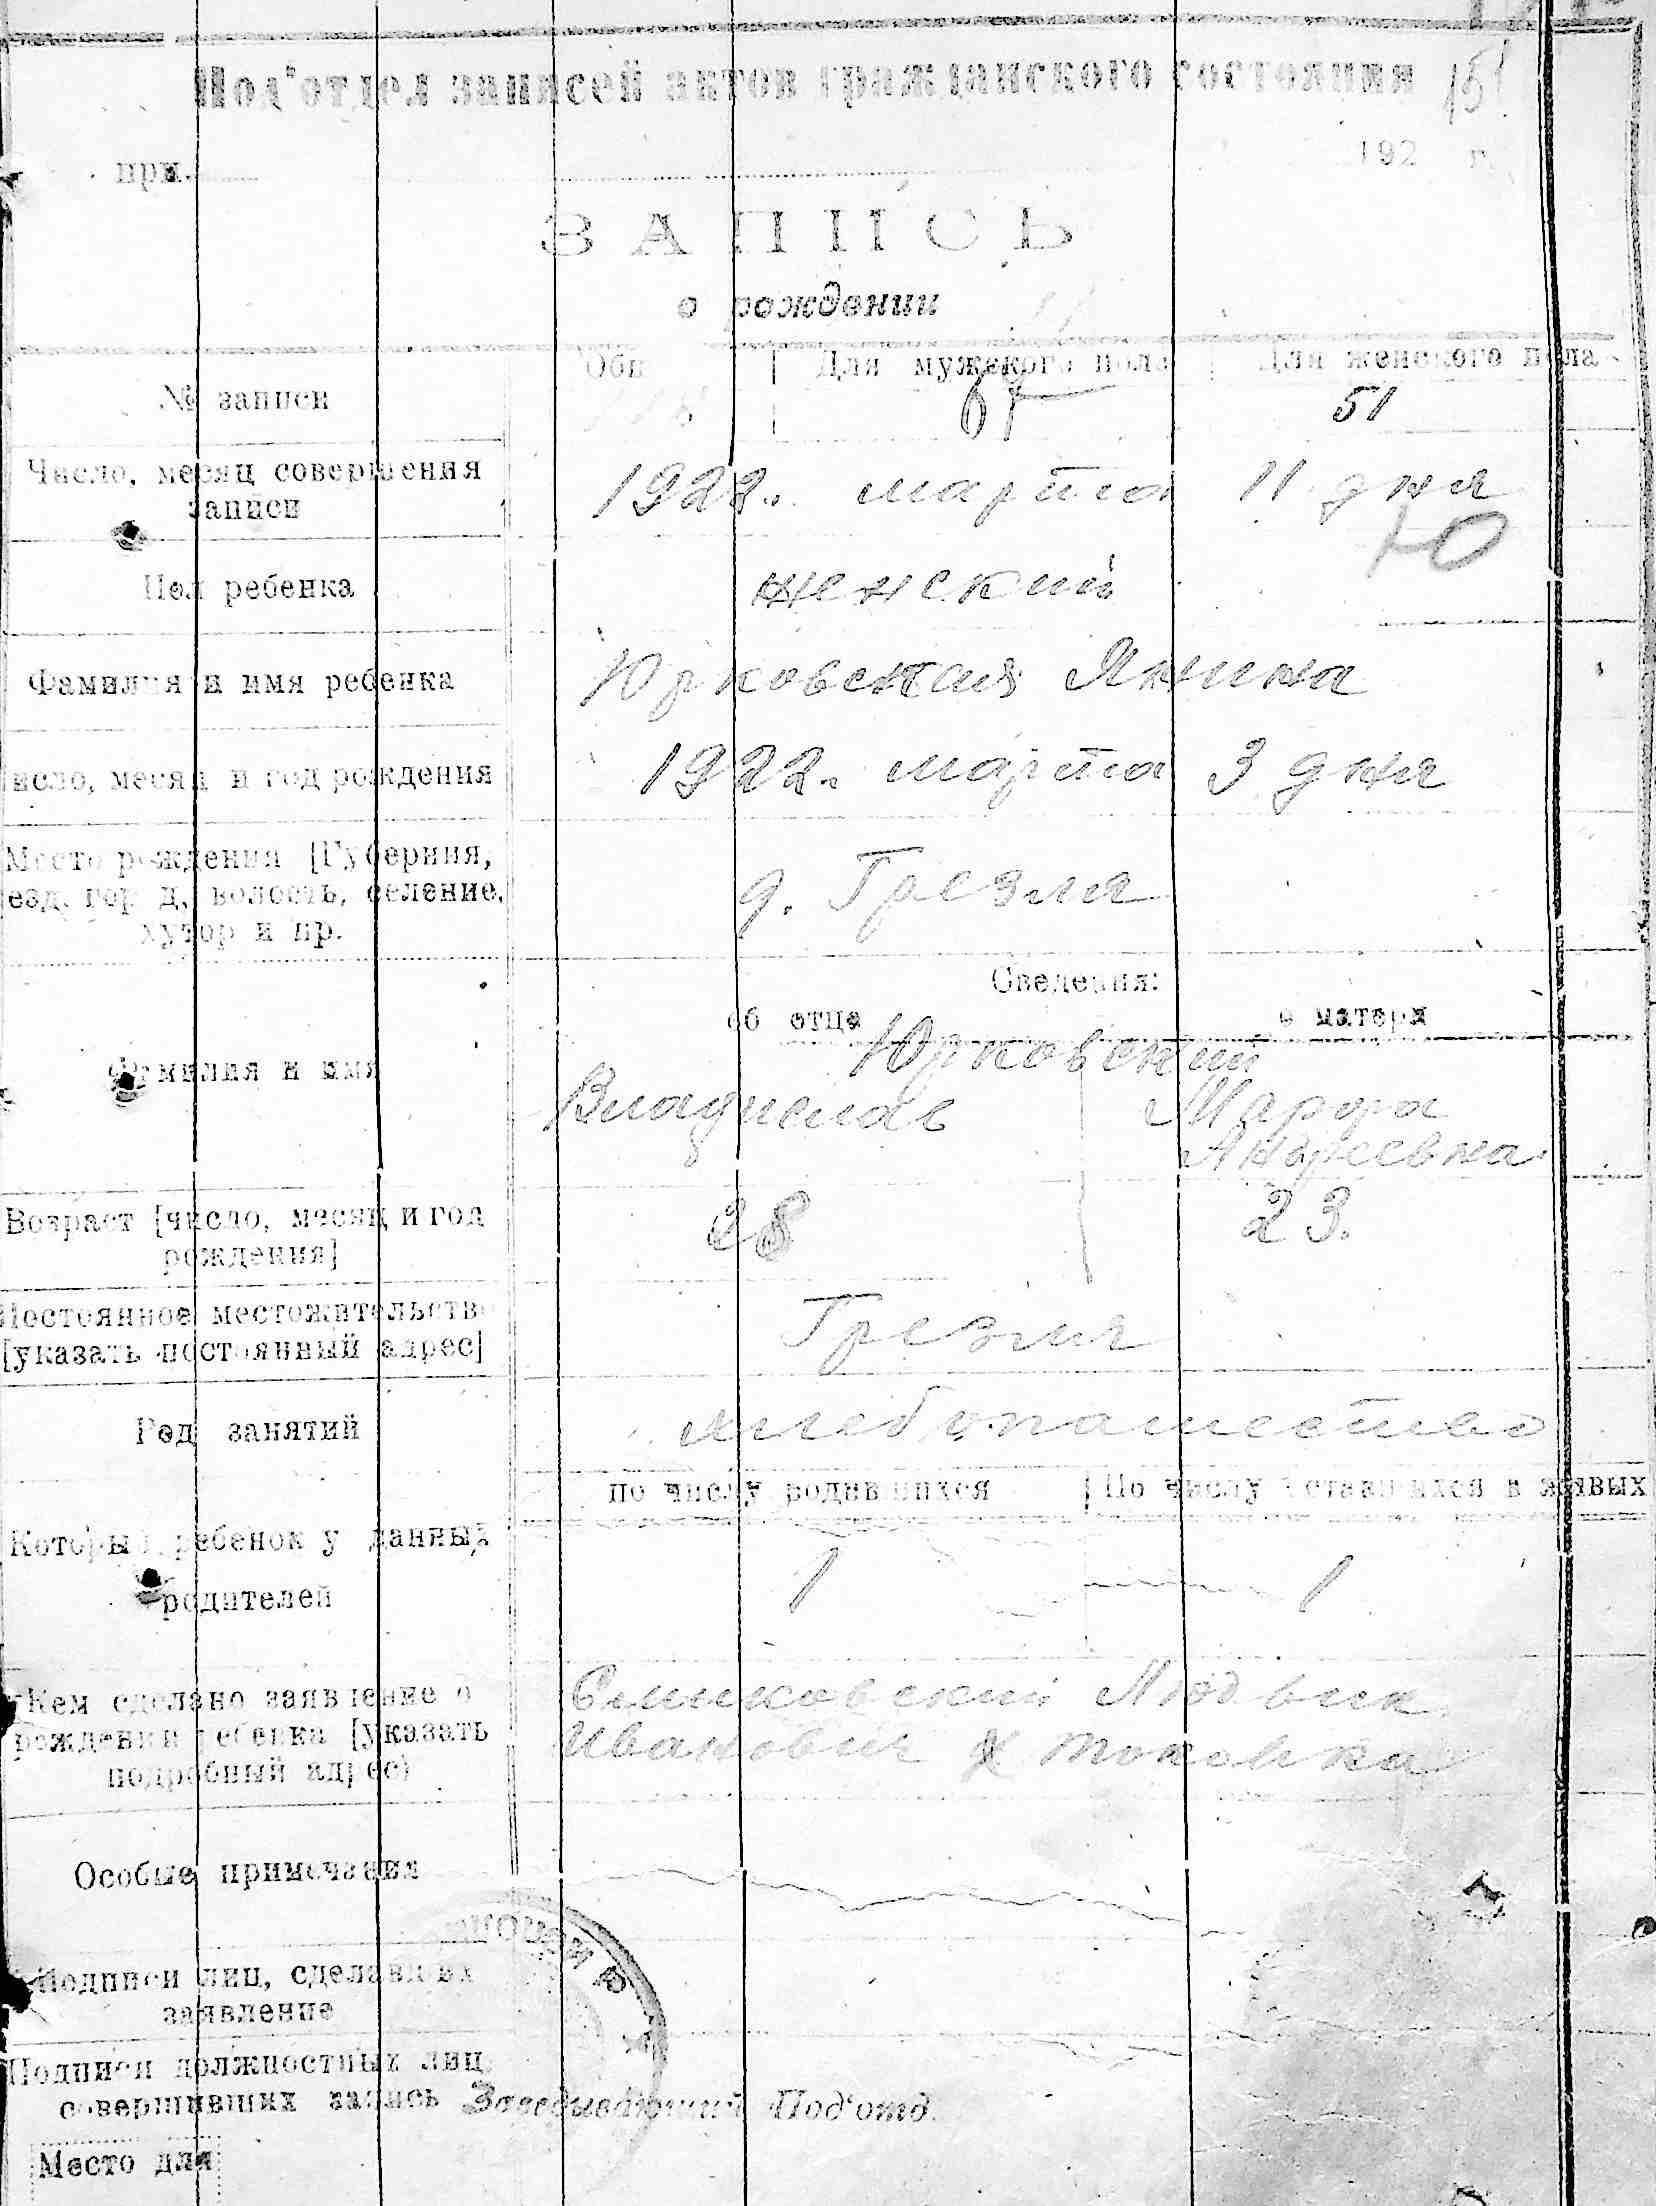 Под'отдел записей актов гражданского состояния 151
при 192 г.
ЗАПИСЬ
о рождении
Для мужского пола Для женского пола
№ записи 51
Число, месяц совершения 1922. марта 11 дня
записи
Ю
Пол ребенка женский
Фамилия и имя ребенка Юрковская Янина
Число, месяц и год рождения 1922. марта 3 дня
Место рождения [Губерния,
уезд, город, волость, селение, д. Грезля
хутор и пр.
Сведения:
об отце о матери
Юрковский
Фамилия и имя Владислав Марфа
Андреевна
Возраст [число, месяц и год 28 23.
рождения]
Постоянное местожительство Грезля
[указать постоянный адрес]
Род занятий хлебопашество
По числу родившихся По числу оставшихся в живых
Который ребенок у данных
родителей 1 1
Кем сделано заявление о Людвик
рождении ребенка [указать Иванович
подробный адрес)
Особые примечания
Подписи лиц, сделавших
заявление
Подписи должностных лиц,
совершивших запись Заведывающий Под'отд.
Место для